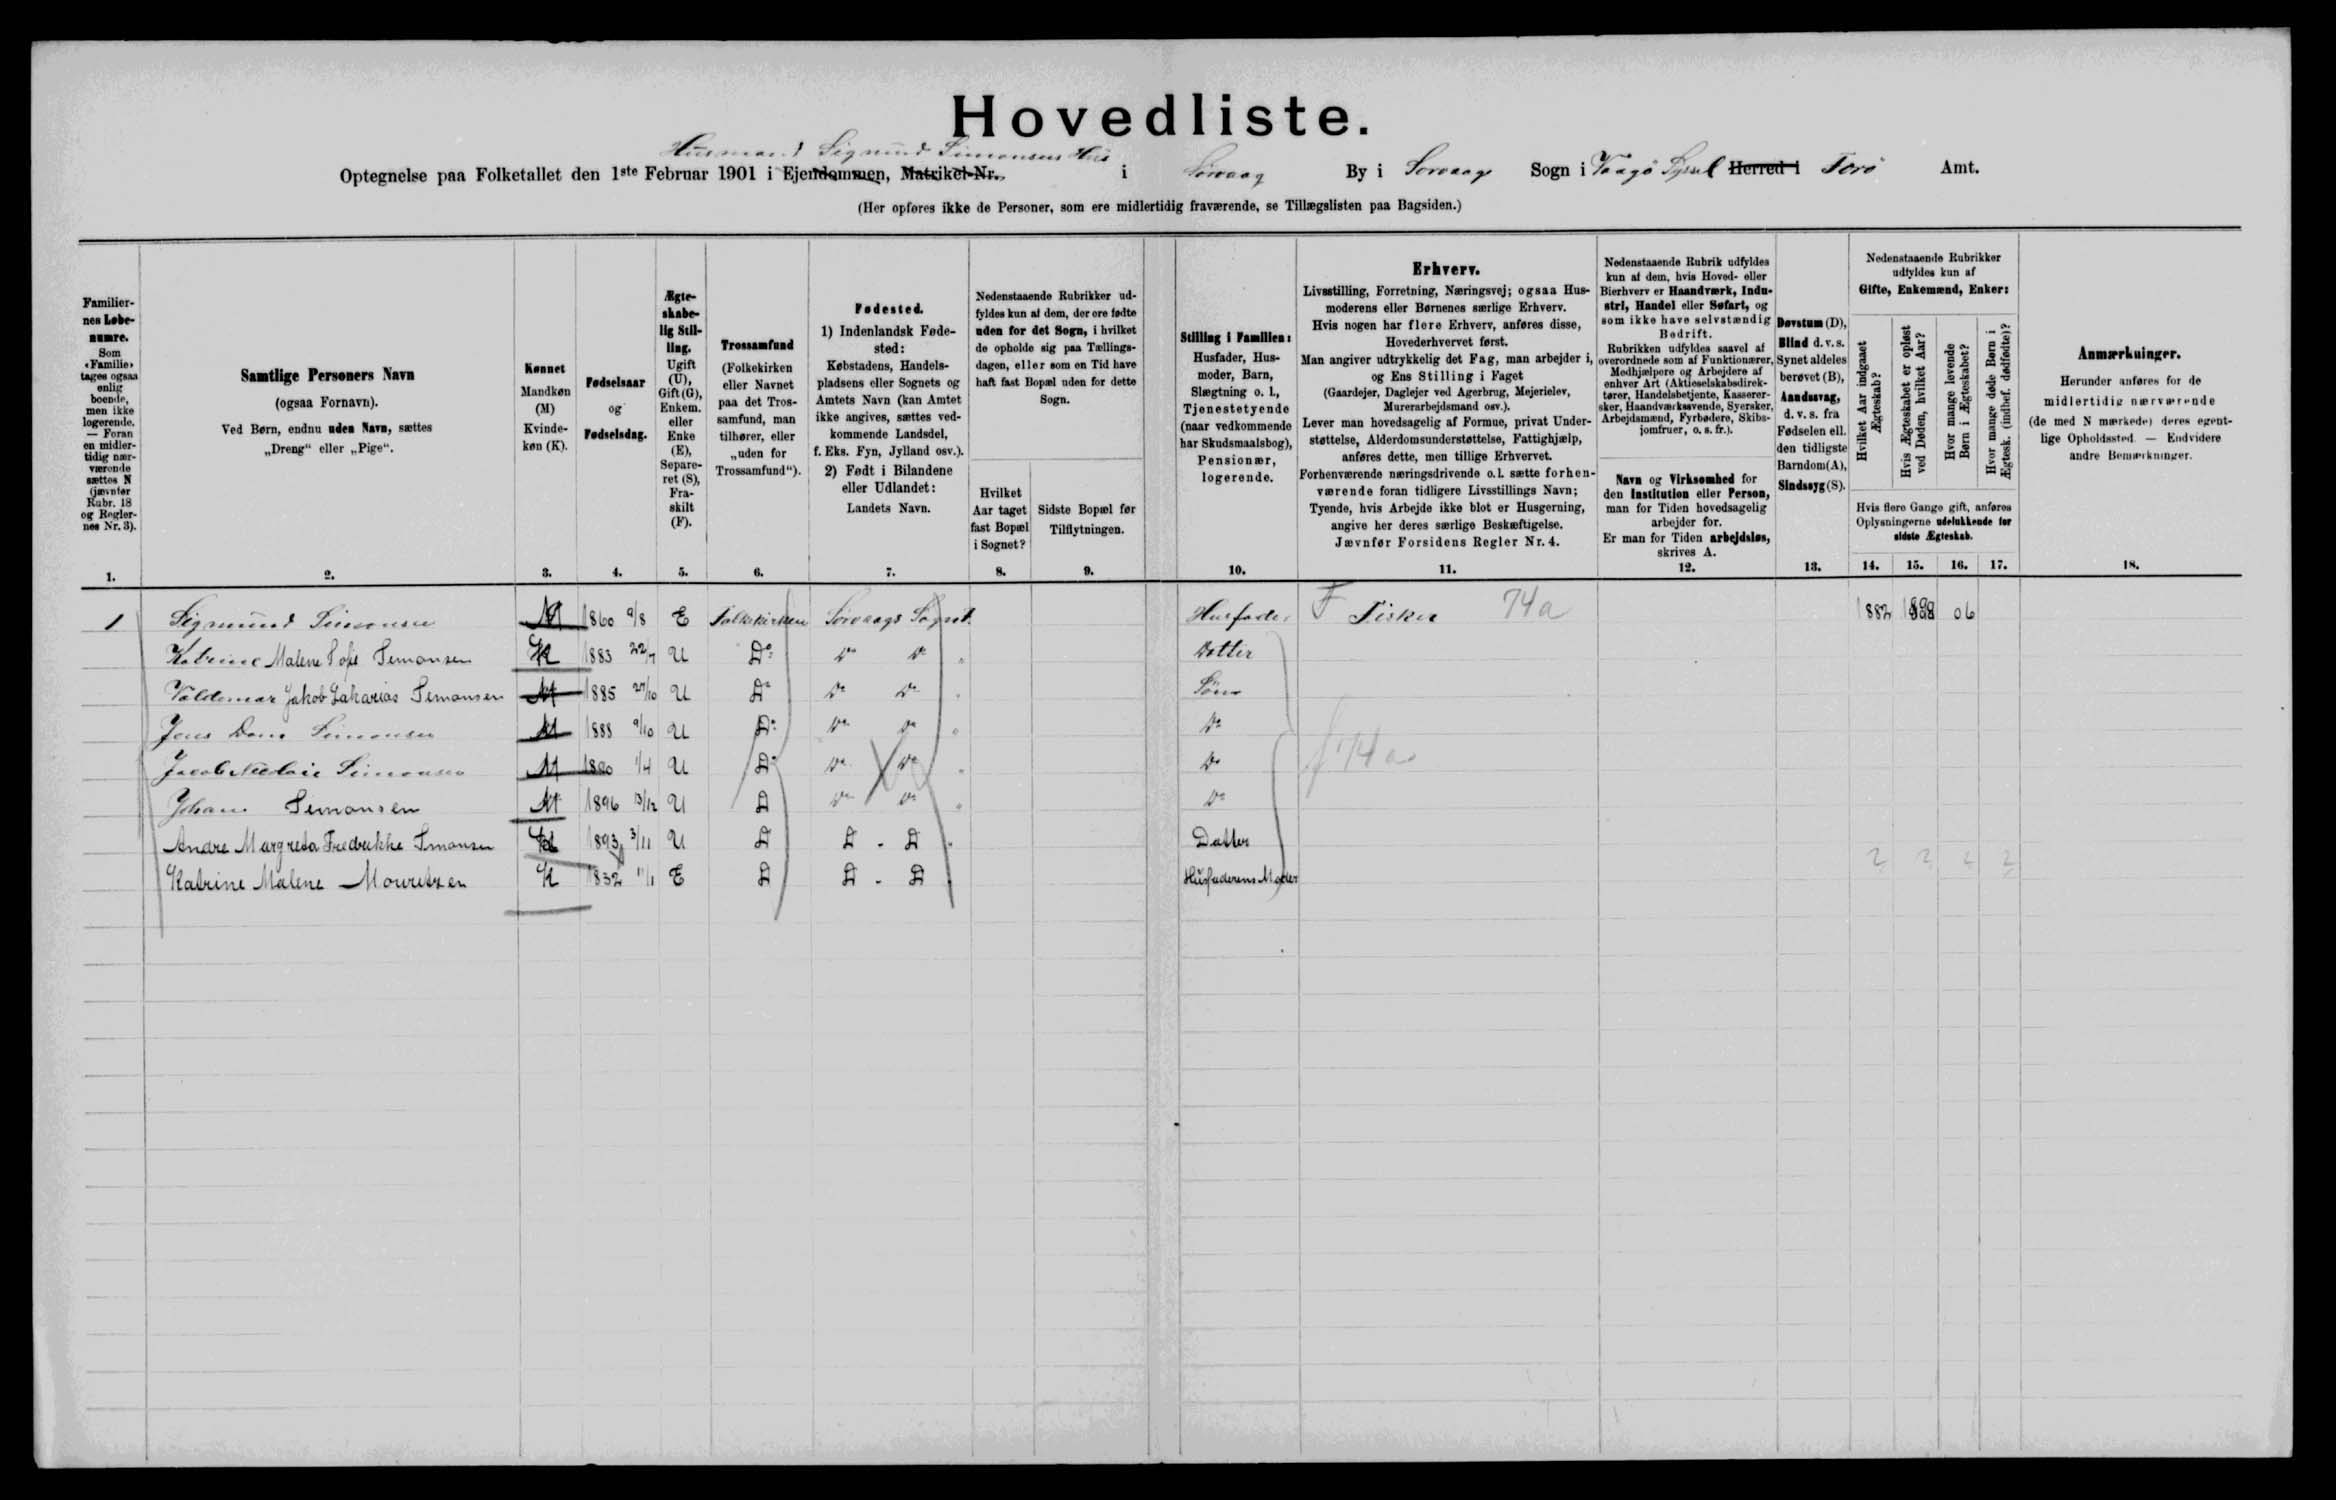 Hovedliste.
Husmand Sigmund Simonsens Hus
Optegnelse paa Folketallet den 1ste Februar 1901 i Ejendommen, Matrikel-Nr. i Sørvaag By i Sorvaags Sogn i Vaagø Syssel Herred i Færø Amt.
(Her opføres ikke de Personer, som ere midlertidig fraværende, se Tillægslisten paa Bagsiden.)
Familier-
nes Løbe-
numre.
Som
«Familie»
tages ogsaa
enlig
boende,
men ikke
logerende.
— Foran
en midler-
tidig nær-
værende
sættes N
(jævnfør
Rubr. 18
og Regler-
nes Nr. 3).
1.
Samtlige Personers Navn
(ogsaa Fornavn).
Ved Børn, endnu uden Navn, sættes
„Dreng“ eller „Pige“.
2.
Kønnet
Mandkøn
(M)
Kvinde-
køn (K).
3.
Fødselsaar
og
Fødselsdag.
4.
Ægte-
skabe-
lig Stil-
ling.
Ugift
(U),
Gift (G),
Enkem.
eller
Enke
(E),
Separe-
ret (S),
Fra-
skilt
(F).
5.
Trossamfund
(Folkekirken
eller Navnet
paa det Tros-
samfund, man
tilhører, eller
„uden for
Trossamfund“).
6.
Fødested.
1) Indenlandsk Føde-
sted:
Købstadens, Handels-
pladsens eller Sognets og
Amtets Navn (kan Amtet
ikke angives, sættes ved-
kommende Landsdel,
f. Eks. Fyn, Jylland osv.).
2) Født i Bilandene
eller Udlandet:
Landets Navn.
7.
Nedenstaaende Rubrikker ud-
fyldes kun af dem, der ere fødte
uden for det Sogn, i hvilket
de opholde sig paa Tællings-
dagen, eller som en Tid have
haft fast Bopæl uden for dette
Sogn.
Hvilket
Aar taget
fast Bopæl
i Sognet?
8.
Sidste Bopæl før
Tilflytningen.
9.
Stilling i Familien:
Husfader, Hus-
moder, Barn,
Slægtning o. l.,
Tjenestetyende
(naar vedkommende
har Skudsmaalsbog),
Pensionær,
logerende.
10.
Erhverv.
Livsstilling, Forretning, Næringsvej; ogsaa Hus-
moderens eller Børnenes særlige Erhverv.
Hvis nogen har flere Erhverv, anføres disse,
Hovederhvervet først.
Man angiver udtrykkelig det Fag, man arbejder i,
og Ens Stilling i Faget
(Gaardejer, Daglejer ved Agerbrug, Mejerielev,
Murerarbejdsmand osv.).
Lever man hovedsagelig af Formue, privat Under-
støttelse, Alderdomsunderstøttelse, Fattighjælp,
anføres dette, men tillige Erhvervet.
Forhenværende næringsdrivende o.l. sætte forhen-
værende foran tidligere Livsstillings Navn;
Tyende, hvis Arbejde ikke blot er Husgerning,
angive her deres særlige Beskæftigelse.
Jævnfør Forsidens Regler Nr. 4.
11.
Nedenstaaende Rubrik udfyldes
kun af dem, hvis Hoved- eller
Bierhverv er Haandværk, Indu-
stri, Handel eller Søfart, og
som ikke have selvstændig
Bedrift.
Rubrikken udfyldes saavel af
overordnede som af Funktionærer,
Medhjælpere og Arbejdere af
enhver Art (Aktieselskabsdirek-
tører, Handelsbetjente, Kasserer-
sker, Haandværkssvende, Syersker,
Arbejdsmænd, Fyrbødere, Skibs-
jomfruer, o. s. fr.).
Navn og Virksomhed for
den Institution eller Person,
man for Tiden hovedsagelig
arbejder for.
Er man for Tiden arbejdsløs,
skrives A.
12.
Døvstum (D),
Blind d. v. s.
Synet aldeles
berøvet (B),
Aandssvag,
d. v. s. fra
Fødselen ell.
den tidligste
Barndom (A),
Sindssyg (S).
13.
Nedenstaaende Rubrikker
udfyldes kun af
Gifte, Enkemænd, Enker:
Hvilket Aar indgaaet
Ægteskab?
Hvis Ægteskabet er opløst
ved Døden, hvilket Aar?
Hvor mange levende
Børn i Ægteskabet?
Hvor mange døde Børn i
Ægtesk. (indbef. dødfødte)?
Hvis flere Gange gift, anføres
Oplysningerne udelukkende for
sidste Ægteskab.
14. 15. 16. 17.
Anmærkninger.
Herunder anføres for de
midlertidig nærværende
(de med N mærkede) deres egent-
lige Opholdssted. — Endvidere
andre Bemærkninger.
18.
1 Sigmund Simonsen M 1860 9/8 E Folkekirken Sørvaags Sogn Husfader F Fisker 74a 1882 06
Katrine Malene Sofie Simonsen K 1883 22/7 U Do Do Do Datter
Valdemar Jakob Zakarias Simonsen M 1885 27/10 U Do Do Do Søn
Jens Simonsen M 1888 9/10 U Do Do Do Do
Jacob Nicolai Simonsen M 1890 1/4 U Do Do Do Do f 74a
Johan Simonsen M 1896 13/12 U D Do Do Do
Andre Margreta Fredrikke Simonsen K 1893 3/11 U D D - D Datter
Katrine Malene Mouritzen K 1832 11/1 E D D - D Husfaderens Moder 2 2 2 2